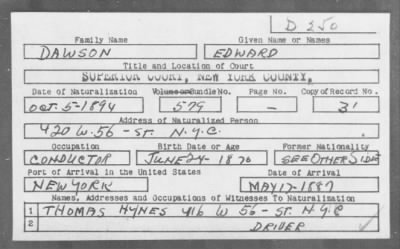 D 250
Family Name Given Name or Names
DAWSON EDWARD
Title and Location of Court
SUPERIOR COURT, NEW YORK COUNTY,
Date of Naturalization Volume or Bundle No. Page No. Copy of Record No.
OCT. 5-1894 579 - 31
Address of Naturalized Person
420 W. 56-ST. N.Y.C.
Occupation Birth Date or Age Former Nationality
CONDUCTOR JUNE 24-1870 SEE OTHER SIDE
Port of Arrival in the United States Date of Arrival
NEW YORK MAY 17-1887
Names, Addresses and Occupations of Witnesses To Naturalization
1 THOMAS HYNES 416 W 56-ST. N.Y.C
2 DRIVER